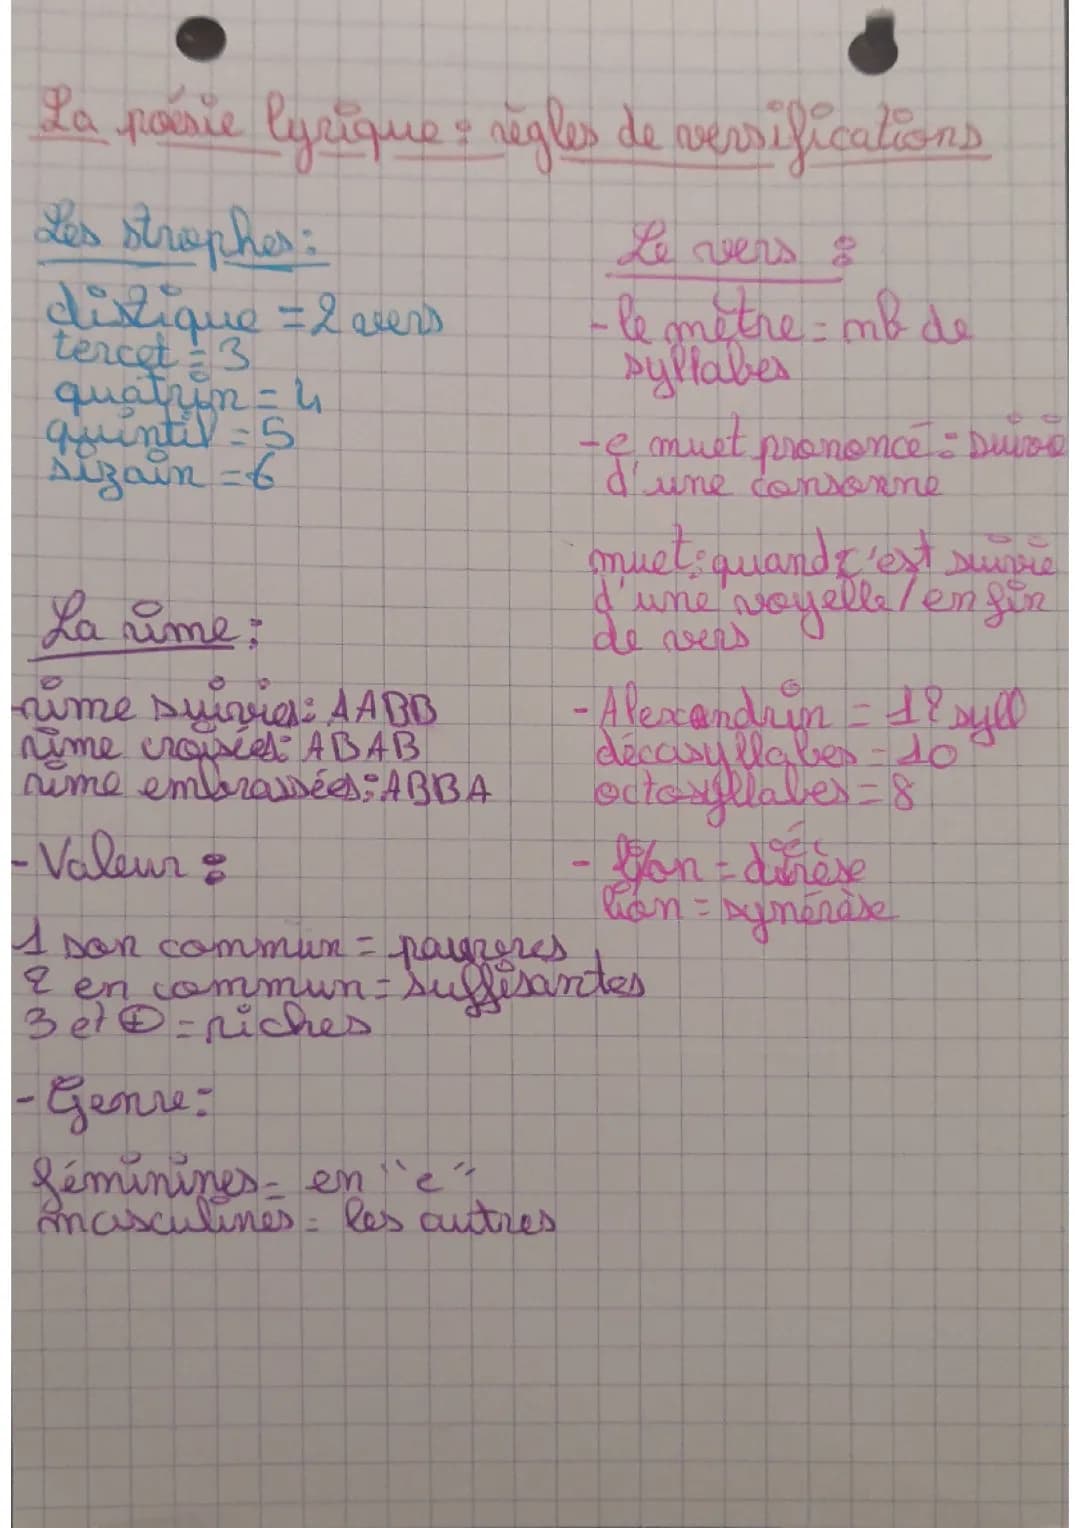 La poésie lyrique : règles de versifications
Les strophes :
distique = 2 vers
tercet = 3
quatrin = 4
quintil = 5
sizain = 6
La rime :
rime suivies : AABB
rime croisées : ABAB
rime embrassées : ABBA
- Valeur :
1 son commun = pauvres
2 en commun = suffisantes
3 et + = riches
- Genre :
féminines = en "e"
masculines = les autres
Le vers :
- le mètre = nb de
syllabes
- e muet prononcé = suivie
d'une consonne
muet : quand c'est suivie
d'une voyelle / en fin
de vers
- Alexandrin = 12 syll
décasyllabes = 10
octosyllabes = 8
- li/on = diérèse
lion = synérèse